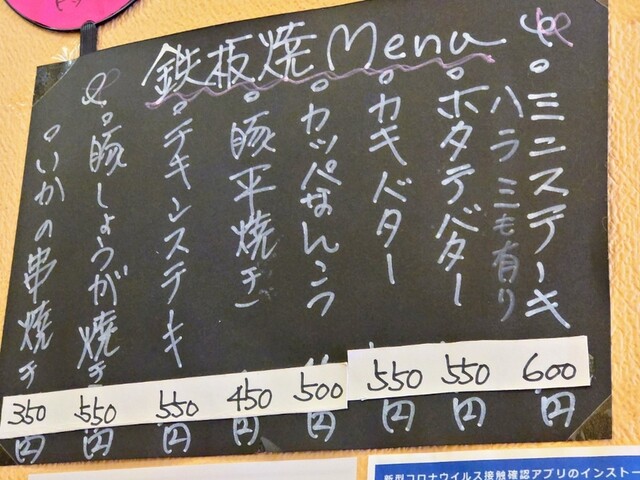 鉄板焼Menu
。ミニステーキ
ハラミも有り
600円
。ホタテバター
550円
。カキバター
550円
。カッパなんこつ
500円
。豚平焼き
450円
。チキンステーキ
550円
。豚しょうが焼き
550円
。いかの串焼き
350円
新型コロナウイルス接触確認アプリのインストー